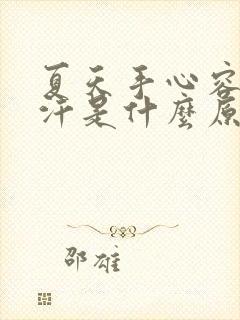 夏天手心容
汗是什麼原
邵雄